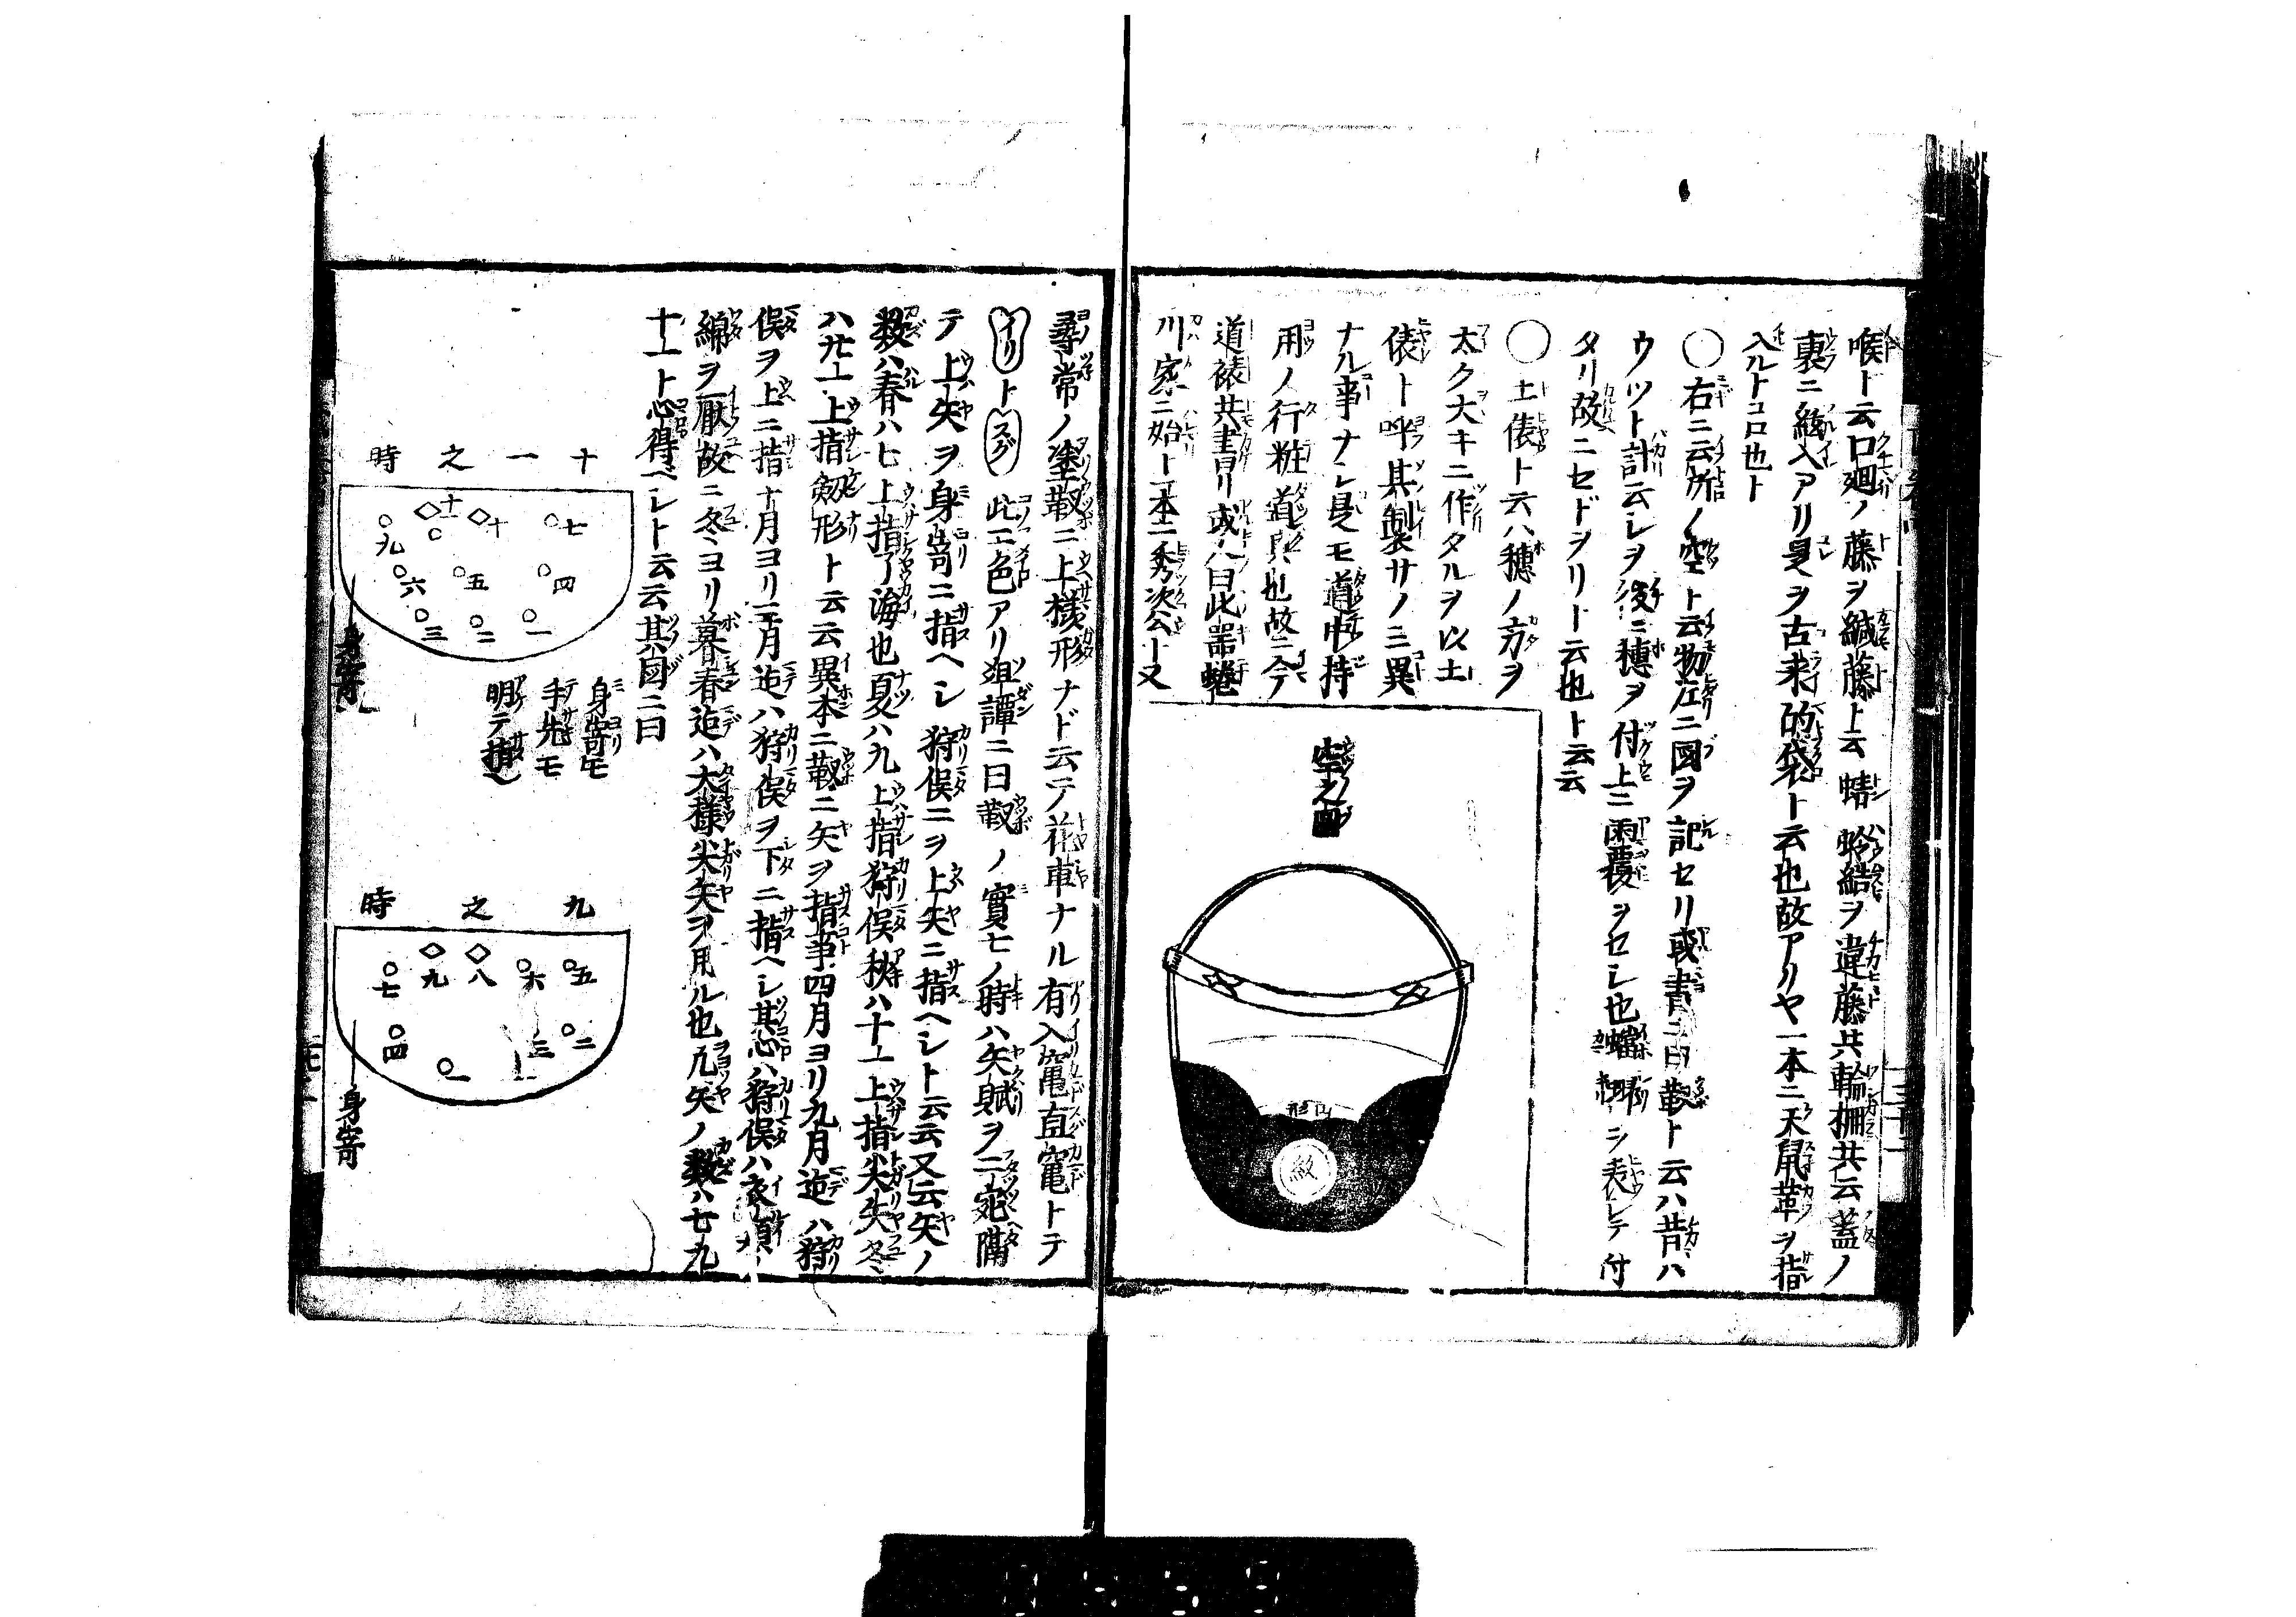 喉ト云口廻ノ藤ヲ緘藤ト云蜻蛉結ヲ違藤共輪搦共云蓋ノ
裏ニ縫入アリ是ヲ古来的袋ト云也故アリヤ一本ニ天鼠革ヲ指
入ルトコロ也ト
〇右ニ云所ノ空ト云物左ニ図ヲ記セリ或書ニ曰靫ト云ハ昔ハ
ウツト計云シヲ後ニ穂ヲ付上ニ雨覆ヲセシ也 シ表シテ付
タリ故ニセドヲリト云也ト云云
〇土俵ト云ハ穂ノ方ヲ
太ク大キニ作タルヲ以土
俵ト呼其製サノミ異
ナル事ナシ是モ道中持
用ノ行粧道具也故ニ今
道裱共書リ或ハ曰此器蜷
川家ニ始ト一本ニ秀次公ト又
空之図
円形
紋
尋常ノ塗靫ニ上様形ナド云テ花車ナル有入竃直竃トテ
イリトスグ此二色アリ爼譚ニ曰靫ノ實七ノ時ハ矢賦ヲ二宛隔
テ上矢ヲ身寄ニ指ヘシ狩俣二ヲ上矢ニ指ヘシト云云又云矢ノ
数ハ春ハ七上指了海也夏ハ九上指狩俣秋ハ十一上指尖矢冬
ハ廿一上指剱形ト云云異本ニ靫ニ矢ヲ指事四月ヨリ九月迄ハ狩
俣ヲ上ニ指十月ヨリ三月迄ハ狩俣ヲ下ニ指ヘシ其心ハ狩俣ハ衣類ノ
綿ヲ厭故ニ冬ヨリ暮春迄ハ大様尖矢ヲ用ル也凡矢ノ数ハ七九
十一ト心得ヘシト云云其図ニ曰
十一之時
七
十
十一
九
四
五
六
一
二
三
身寄
身寄モ
手先モ
明テ指也
九之時
五
六
八
九
七
二
三
一
四
身寄